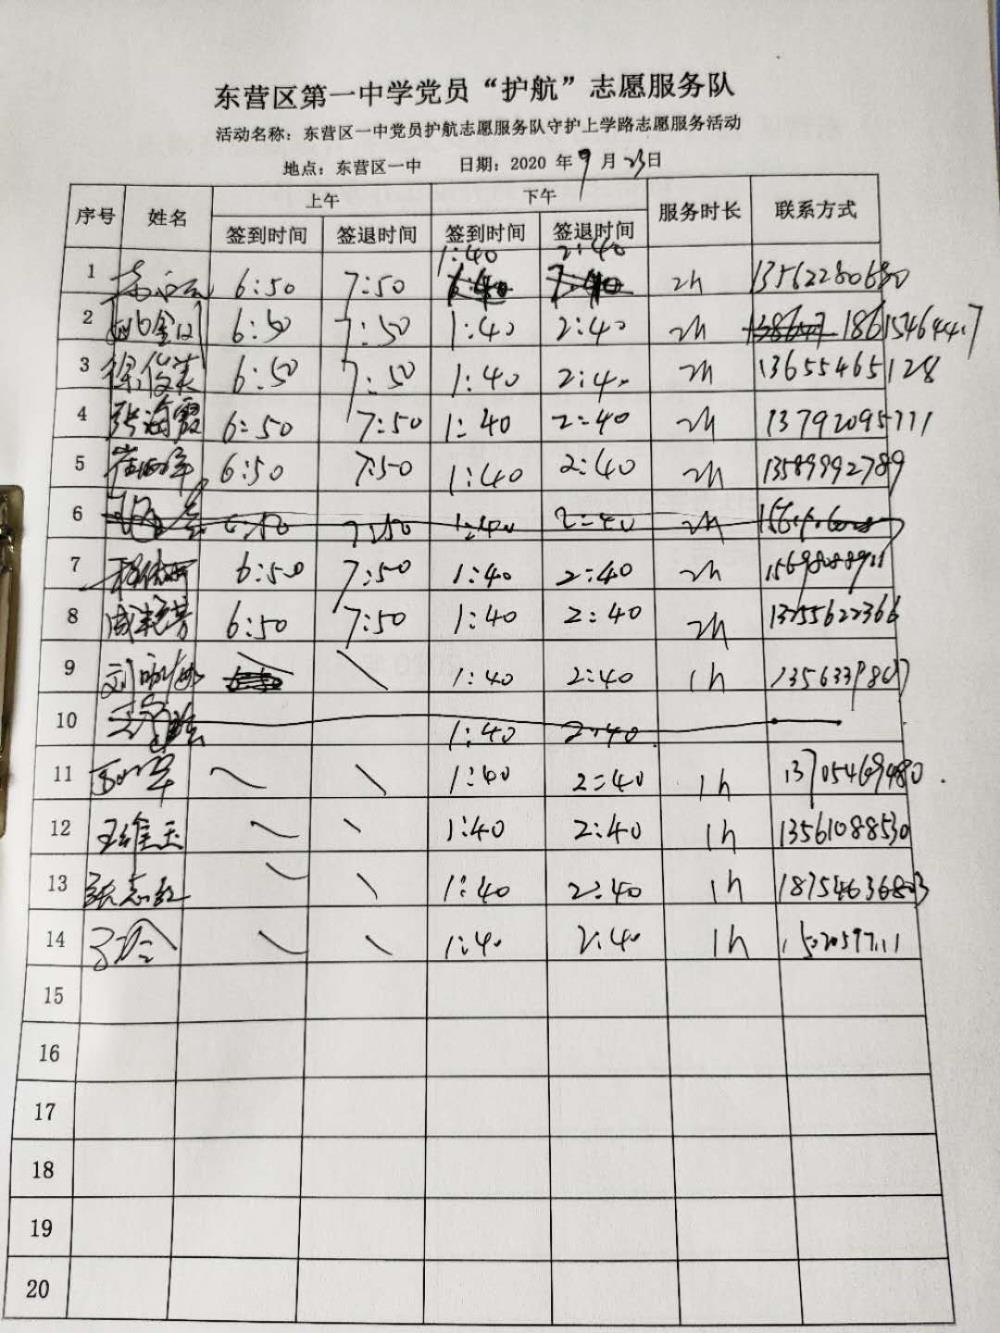 东营区第一中学党员“护航”志愿服务队
活动名称：东营区一中党员护航志愿服务队守护上学路志愿服务活动
地点：东营区一中 日期：2020 年 9 月 23日
序号 姓名 上午 下午 服务时长 联系方式
签到时间 签退时间 签到时间 签退时间
1:40 2:40
1 6:50 7:50 2h 13562280680
2 6:50 7:50 1:40 2:40 2h 18615464447
3 徐俊英 6:50 7:50 1:40 2:40 2h 13655465128
4 张海霞 6:50 7:50 1:40 2:40 2h 13792095711
5 6:50 7:50 1:40 2:40 2h 13589992789
6 6:50 7:50 1:40 2:40 2h
7 6:50 7:50 1:40 2:40 2h
8 6:50 7:50 1:40 2:40 2h 13255622366
9 1:40 2:40 1h
10 1:40 2:40
11 1:40 2:40 1h 13705469480
12 王维玉 1:40 2:40 1h 13561088530
13 张志红 1:40 2:40 1h 18754636803
14 1:40 2:40 1h
15
16
17
18
19
20